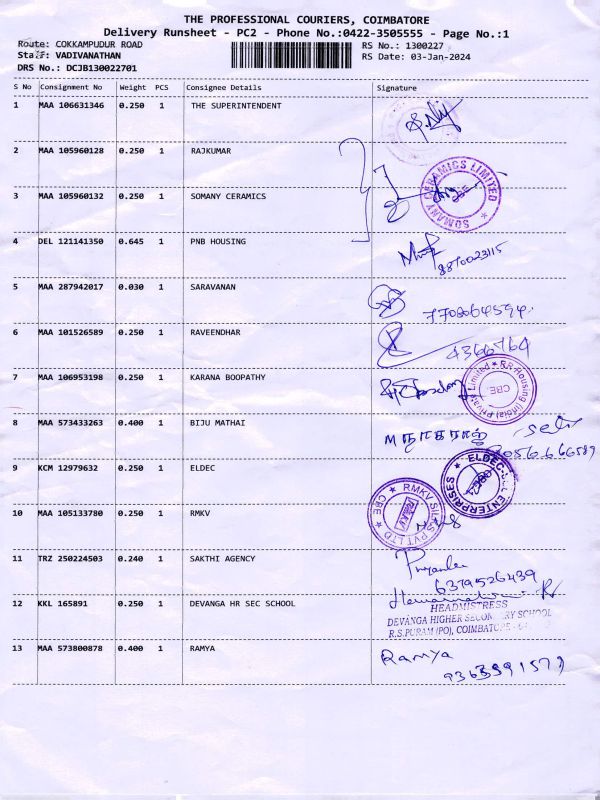 THE PROFESSIONAL COURIERS, COIMBATORE
Delivery Runsheet - PC2 - Phone No.:0422-3505555 - Page No.:1
Route: COKKAMPUDUR ROAD RS No.: 1300227
Staff: VADIVANATHAN RS Date: 03-Jan-2024
DRS No.: DCJB130022701
S No Consignment No Weight PCS Consignee Details Signature
1 MAA 106631346 0.250 1 THE SUPERINTENDENT
2 MAA 105960128 0.250 1 RAJKUMAR
3 MAA 105960132 0.250 1 SOMANY CERAMICS
SOMANY CERAMICS LIMITED
4 DEL 121141350 0.645 1 PNB HOUSING
8870023115
5 MAA 287942017 0.030 1 SARAVANAN
7708064594
6 MAA 101526589 0.250 1 RAVEENDHAR
4366764
7 MAA 106953198 0.250 1 KARANA BOOPATHY
RR Housing (India) Private Limited CBE.
8 MAA 573433263 0.400 1 BIJU MATHAI
நாகராஜ்
9 KCM 12979632 0.250 1 ELDEC
ENTERPRISES
10 MAA 105133780 0.250 1 RMKV
RMKV SILKS PVT LTD CBE
11 TRZ 250224503 0.240 1 SAKTHI AGENCY
Priyanka
6379526439
12 KKL 165891 0.250 1 DEVANGA HR SEC SCHOOL
HEADMISTRESS
DEVANGA HIGHER SECONDARY SCHOOL
R.S.PURAM (PO), COIMBATORE
13 MAA 573800878 0.400 1 RAMYA
Ramya